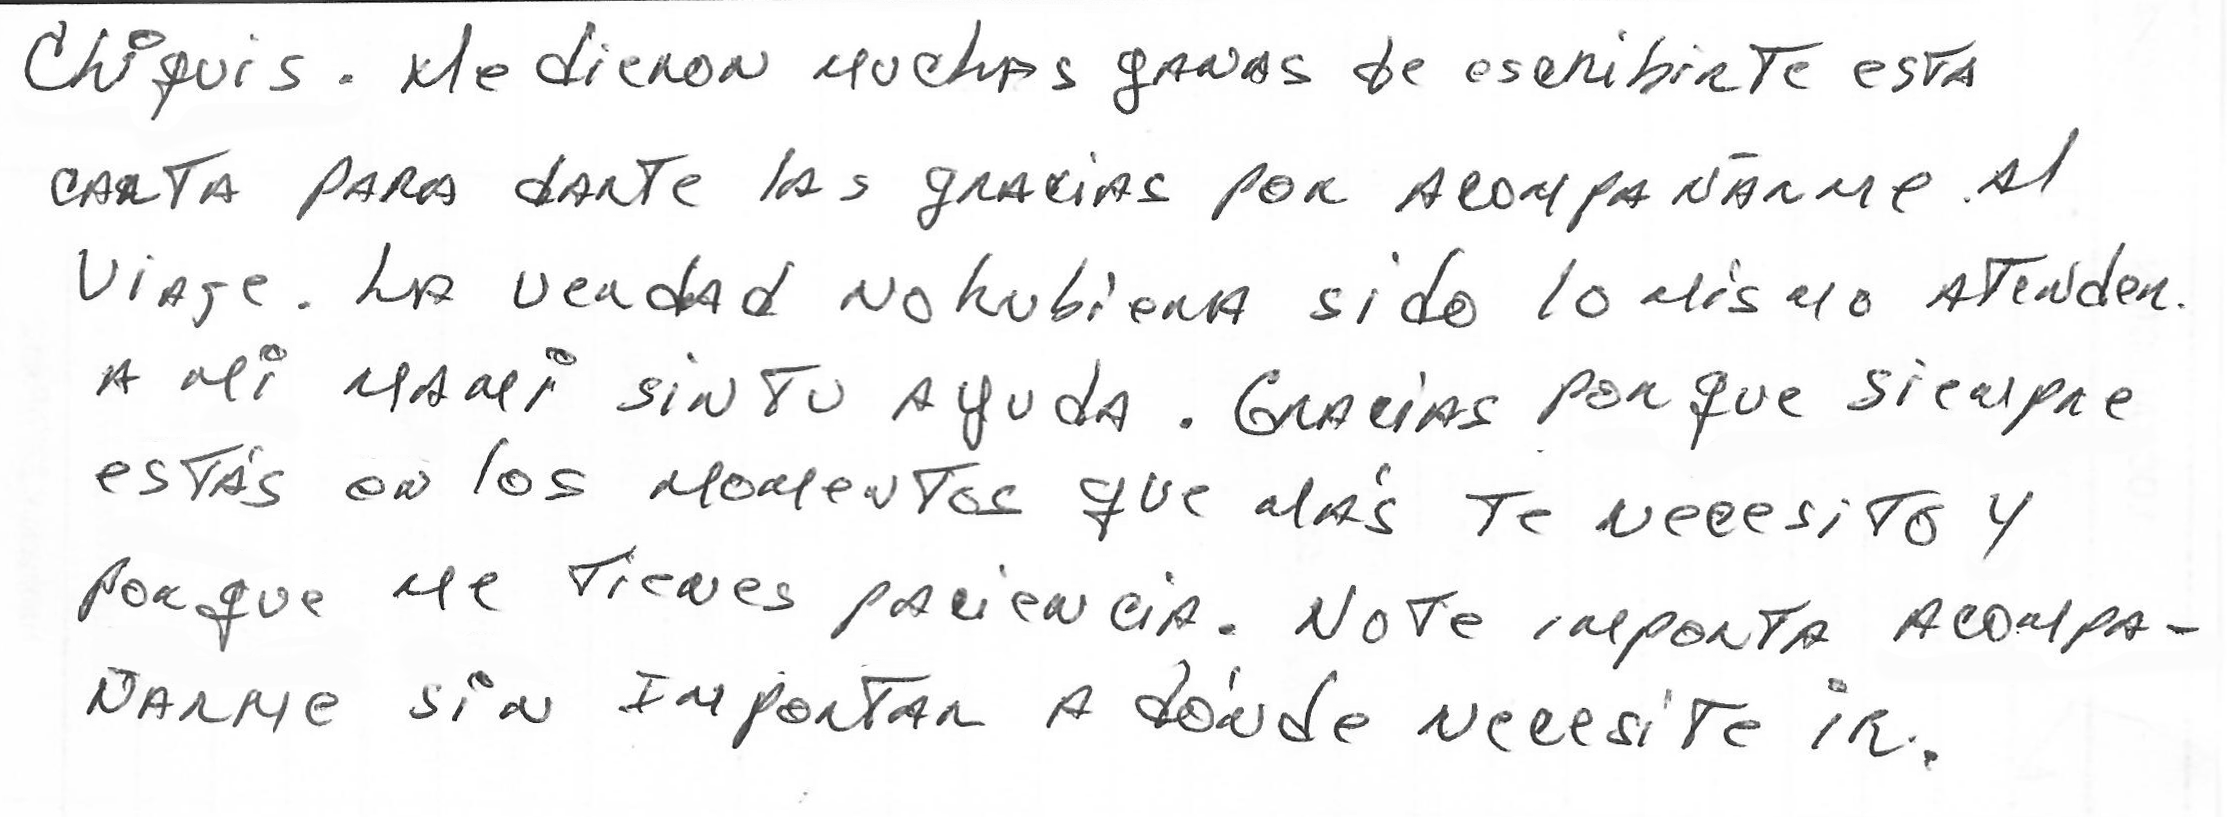 Chiquis. Me dieron muchas ganas de escribirte esta
carta para darte las gracias por acompañarme al
viaje. La verdad no hubiera sido lo mismo atender
a mi mami sin tu ayuda. Gracias porque siempre
estás en los momentos que más te necesito y
porque me tienes paciencia. No te importa acompa-
ñarme sin importar a dónde necesite ir.